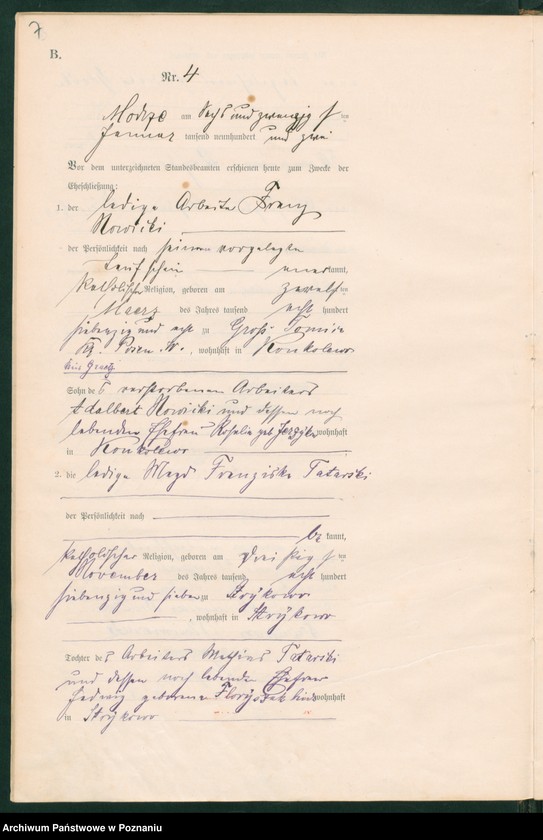 7
B.
Nr. 4
Modrze am Sechs und zwanzig sten
Januar tausend neunhundert und zwei
Vor dem unterzeichneten Standesbeamten erschienen heute zum Zwecke der
Eheschließung:
1. der ledige Arbeiter Franz
Nowicki
der Persönlichkeit nach seinen vorgelegten
Taufschein anerkannt,
katholischer Religion, geboren am zwölften
Maerz des Jahres tausend acht hundert
siebenzig und acht zu Gross
Posen, wohnhaft in Konkolewo
Kreis Graetz
Sohn des verstorbenen Arbeiters
Adalbert Nowicki und dessen noch
lebenden Ehefrau Rosalie geb wohnhaft
in Konkolewo
2. die ledige Magd Franziska Tatarski
der Persönlichkeit nach
bekannt,
katholischer Religion, geboren am dreisigsten
November des Jahres tausend acht hundert
siebenzig und sieben zu Strÿkowo
, wohnhaft in Strÿkowo
Tochter des Arbeiters Mathias Tatarski
und dessen noch lebenden Ehefrau
Hedwig geborenen wohnhaft
in Strÿkowo
Archiwum Państwowe w Poznaniu